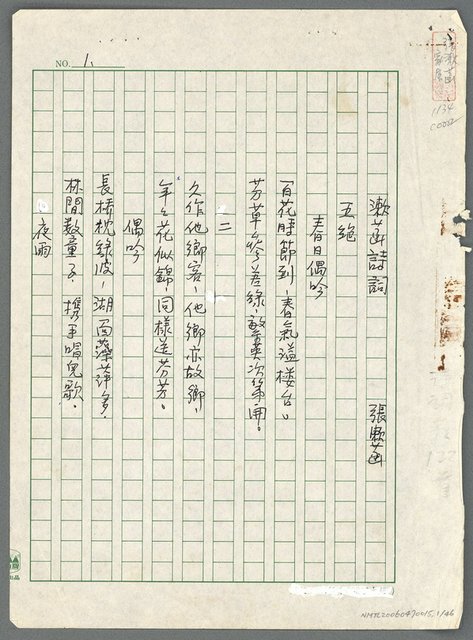 NO. 1
漱菡詩詞 張漱菡
五絕
春日偶吟
百花時節到，春氣溢樓台。
芳草茵茵綠，繁英次第開。
二
久作他鄉客，他鄉亦故鄉
年年花似錦，同樣送芬芳。
偶吟
長橋枕綠波，湖面藻萍多，
林間數童子，携手唱兒歌。
夜雨
1134
NMTL20060470015.1/46